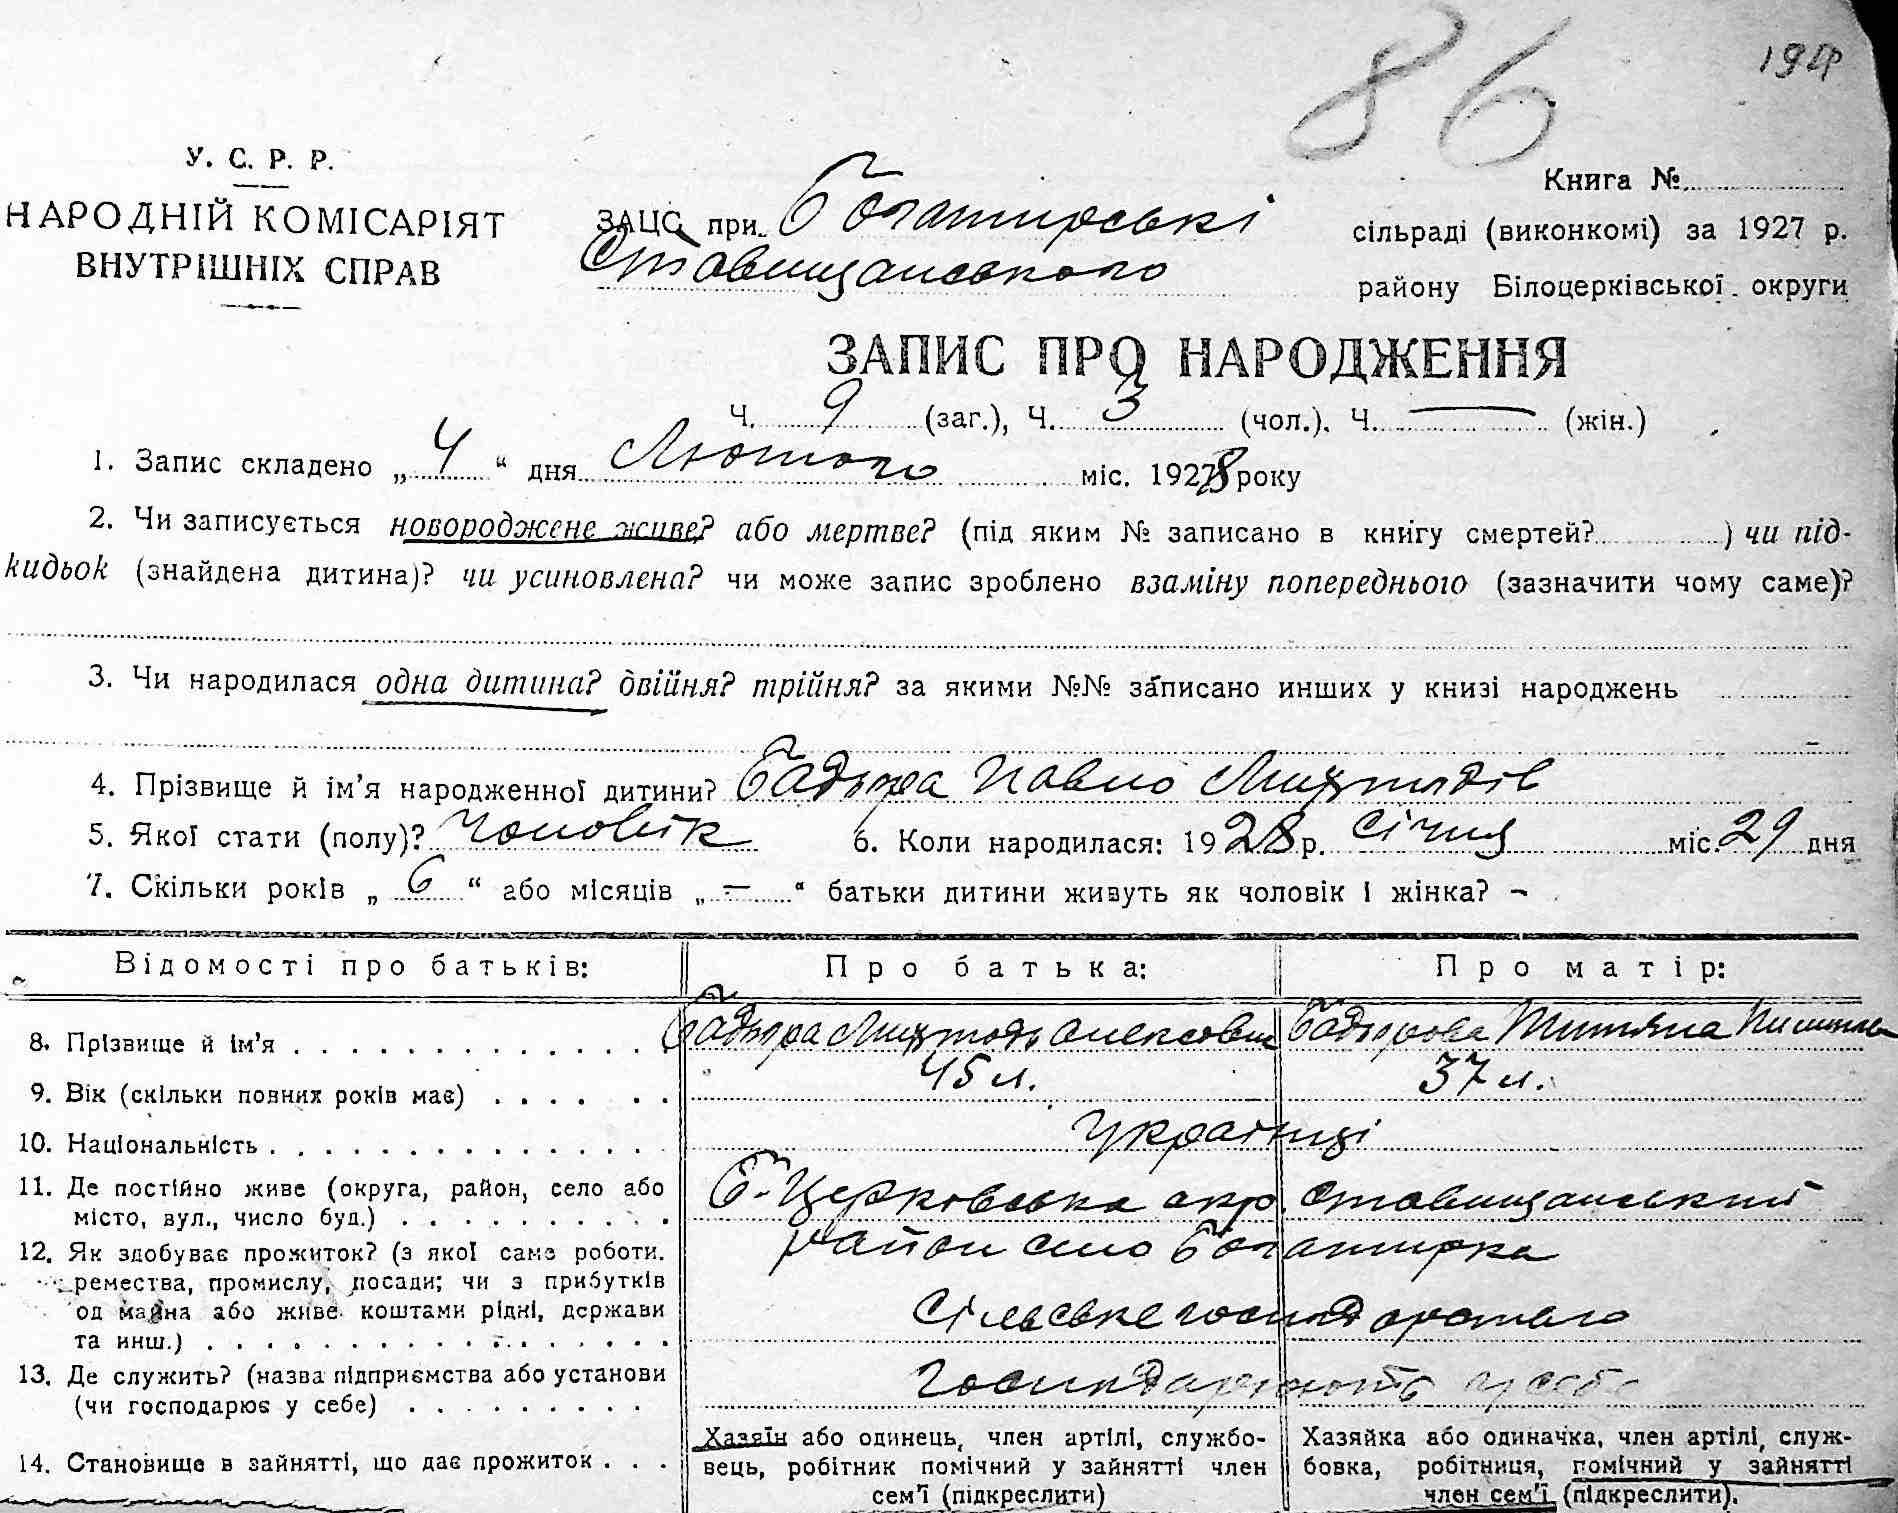 86
194
У. С. Р. Р.
НАРОДНІЙ КОМІСАРІЯТ
ВНУТРІШНІХ СПРАВ
Книга №
ЗАЦС при Богатирські сільраді (виконкомі) за 1927 р.
Ставищанського району Білоцерківської округи
ЗАПИС ПРО НАРОДЖЕННЯ
Ч. 9 (заг.), Ч. 3 (чол.), Ч. — (жін.)
1. Запис складено „ 4 “ дня Лютого міс. 1928 року
2. Чи записується новороджене живе? або мертве? (під яким № записано в книгу смертей? ) чи під-
кидьок (знайдена дитина)? чи усиновлена? чи може запис зроблено взаміну попереднього (зазначити чому саме)?
3. Чи народилася одна дитина? двійня? трійня? за якими №№ записано инших у книзі народжень
4. Прізвище й ім'я народженної дитини? Бадьора Павло
5. Якої стати (полу)? Чоловік 6. Коли народилася: 1928 р. Січня міс. 29 дня
7. Скільки років „ 6 “ або місяців „ — “ батьки дитини живуть як чоловік і жінка? -
Відомості про батьків: Про батька: Про матір:
8. Прізвище й ім'я Бадьора Олексович Бадьорова Титяна
9. Вік (скільки повних років має) 45 л. 37 л.
10. Національність Українці
11. Де постійно живе (округа, район, село або Б-Церковська окр. Ставищанський
місто, вул., число буд.) район село Богатирка
12. Як здобуває прожиток? (з якої саме роботи.
ремества, промислу, посади; чи з прибутків
од майна або живе коштами рідні, держави Сільське господарство
та инш.)
13. Де служить? (назва підприємства або установи Господарюють у себе
(чи господарює у себе)
14. Становище в зайнятті, що дає прожиток
Хазяїн або одинець, член артілі, службо-
вець, робітник помічний у зайнятті член
сем'ї (підкреслити)
Хазяйка або одиначка, член артілі, служ-
бовка, робітниця, помічний у зайнятті
член сем'ї (підкреслити).